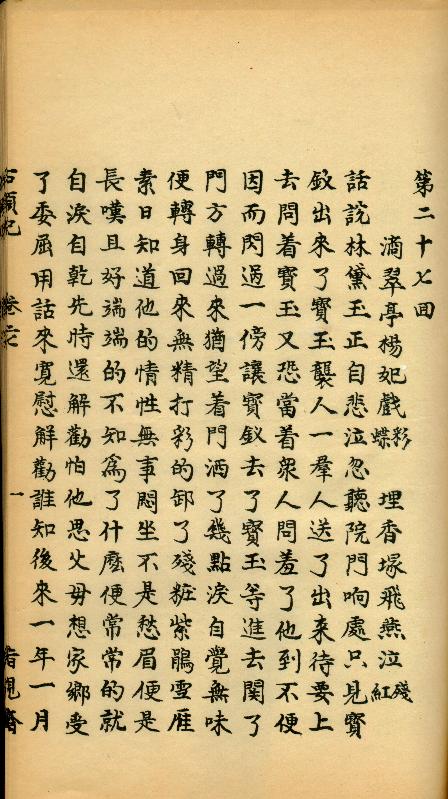 第二十七回
滴翠亭楊妃戲彩蝶　埋香塚飛燕泣殘紅
話說林黛玉正自悲泣忽聽院門响處只見寶
釵出來了寶玉襲人一羣人送了出來待要上
去問着寶玉又恐當着衆人問羞了他到不便
因而閃過一傍讓寶釵去了寶玉等進去関了
門方轉過來猶望着門洒了幾點淚自覺無味
便轉身回來無精打彩的卸了殘粧紫鵑雪雁
素日知道他的情性無事悶坐不是愁眉便是
長嘆且好端端的不知為了什庅便常常的就
自淚自乾先時還解勸怕他思父毋想家鄉受
了委屈用話來寬慰解勸誰知後來一年一月
石頭記　卷二七　一